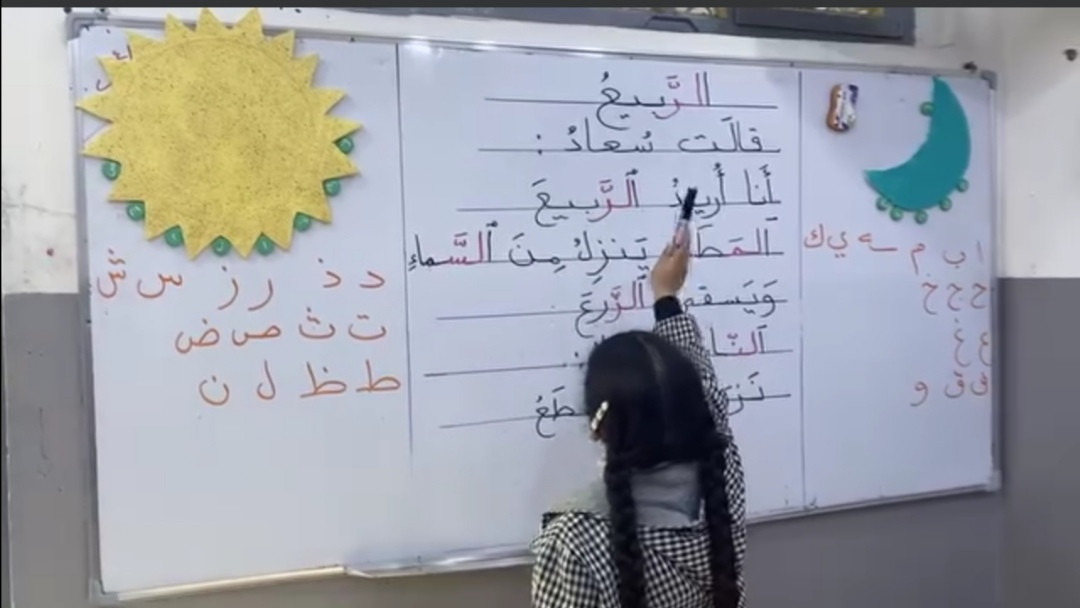 الرَّبيعُ
قالَت سُعادُ :
أَنا أُريدُ ٱلرَّبيعَ
اَلمَطَ يَنزِلُ مِنَ ٱلسَّماءِ
وَيَسقي ٱلزَّرعَ
ا ب م ه ي ك
ح ج خ
ع غ
ف ق و
د ذ ر ز س ش
ت ث ص ض
ط ظ ل ن